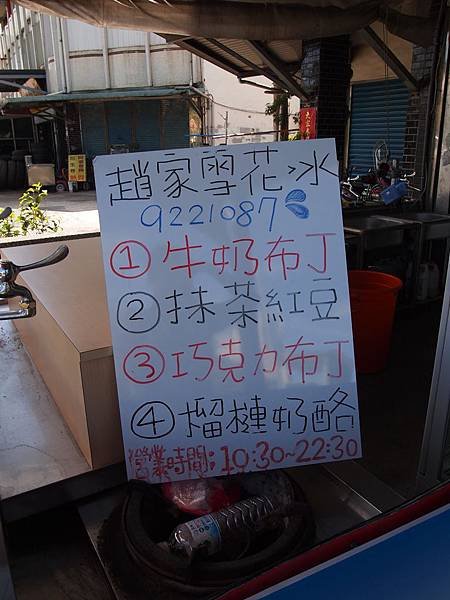 趙家雪花冰
9221087
① 牛奶布丁
② 抹茶紅豆
③ 巧克力布丁
④ 榴槤奶酪
營業時間:10:30~22:30